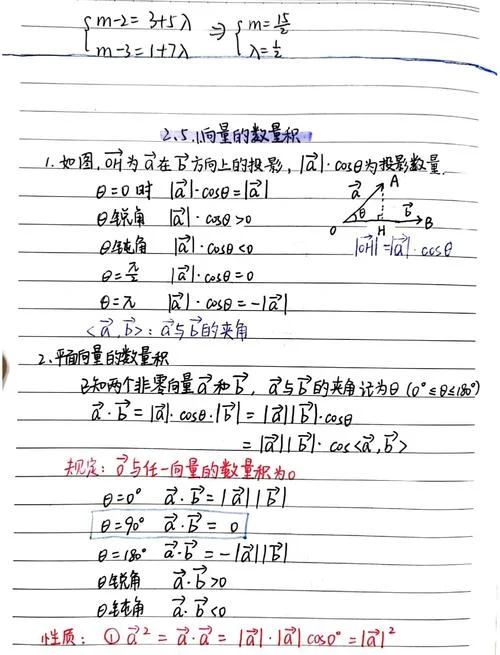 {m-2=3+5λ ⇒ {m=15/2
{m-3=1+7λ {λ=1/2
2.5.1向量的数量积
1.如图,OH⃗为a⃗在b⃗方向上的投影,|a⃗|·cosθ为投影数量.
θ=0时 |a⃗|·cosθ=|a⃗|
θ锐角 |a⃗|·cosθ>0
θ钝角 |a⃗|·cosθ<0
θ=π/2 |a⃗|·cosθ=0
θ=π |a⃗|·cosθ=-|a⃗|
a⃗ A
θ b⃗
O H B
|OH⃗|=|a⃗|·cosθ
<a⃗,b⃗>:a⃗与b⃗的夹角
2.平面向量的数量积
已知两个非零向量a⃗和b⃗,a⃗与b⃗的夹角记为θ(0°≤θ≤180°)
a⃗·b⃗=|a⃗|·cosθ·|b⃗|=|a⃗||b⃗|·cosθ
=|a⃗||b⃗|·cos<a⃗,b⃗>
规定:0⃗与任一向量的数量积为0
θ=0° a⃗·b⃗=|a⃗||b⃗|
θ=90° a⃗·b⃗=0
θ=180° a⃗·b⃗=-|a⃗||b⃗|
θ锐角 a⃗·b⃗>0
θ钝角 a⃗·b⃗<0
性质:①a⃗²=a⃗·a⃗=|a⃗|·|a⃗|cos0°=|a⃗|²